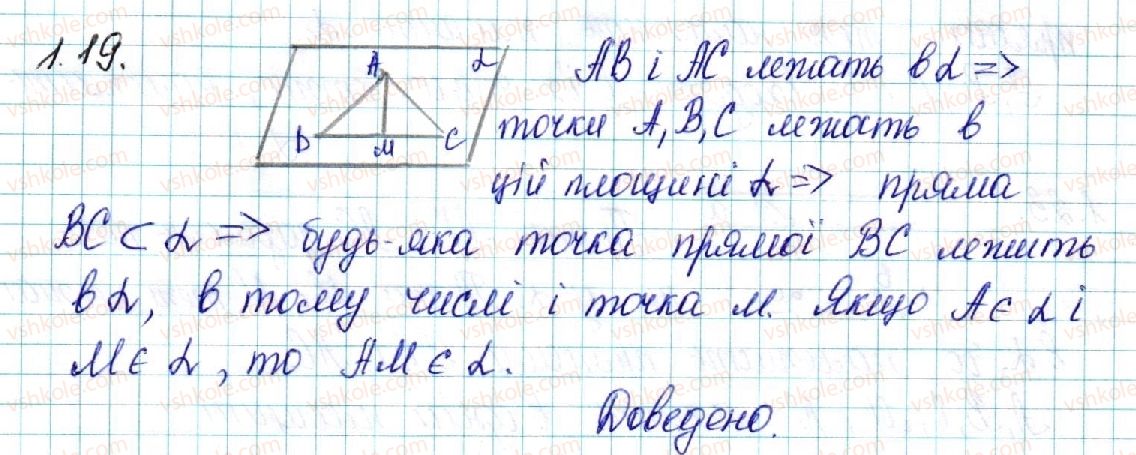 1.19.
A α
B M C
AB і AC лежать в α =>
точки A, B, C лежать в
цій площині α => пряма
BC ⊂ α => будь-яка точка прямої BC лежить
в α, в тому числі і точка M. Якщо A ∈ α і
M ∈ α, то AM ∈ α.
Доведено.
vshkole.com